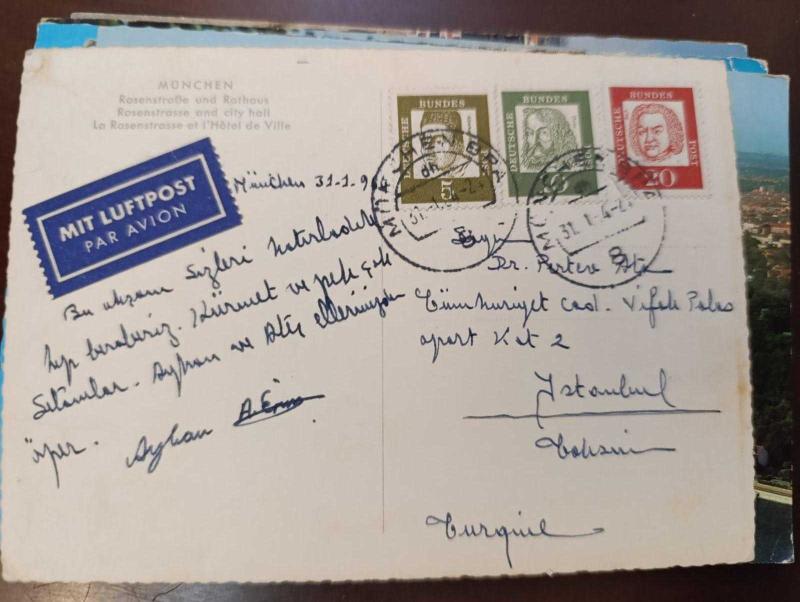 MÜNCHEN
Rosenstraße und Rathaus
Rosenstrasse and city hall
La Rosenstrasse et l'Hôtel de Ville
MIT LUFTPOST
PAR AVION
München 31.1.9
Bu akşam Sizleri hatırladık
hep beraberiz. Hürmet ve pek çok
Selâmlar. Ayhan ve Atış ellerinizden
öper.
Ayhan
DEUTSCHE BUNDES POST
5
DEUTSCHE BUNDES
DEUTSCHE BUNDES POST
20
31.1.
8
31.1.
8
Sayın
Dr. Pertev Ata
Cümhuriyet cad. Vefek Palas
apart Kat 2
Istanbul
Taksim
Turquie